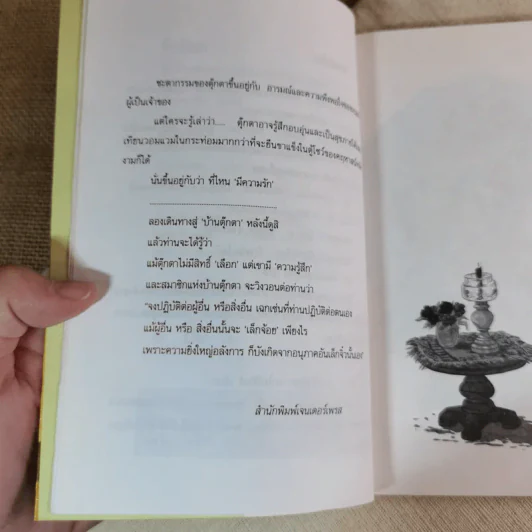 ชะตากรรมของตุ๊กตาขึ้นอยู่กับ อารมณ์และความพึงพอใจของ
ผู้เป็นเจ้าของ
แต่ใครจะรู้เล่าว่า.... ตุ๊กตาอาจรู้สึกอบอุ่นและเป็นสุขภายใต้แสง
เทียนวอมแวมในกระท่อมมากกว่าที่จะยืนขาแข็งในตู้โชว์ของคฤหาสน์
งามก็ได้
นั่นขึ้นอยู่กับว่า ที่ไหน 'มีความรัก'
ลองเดินทางสู่ 'บ้านตุ๊กตา' หลังนี้ดูสิ
แล้วท่านจะได้รู้ว่า
แม้ตุ๊กตาไม่มีสิทธิ์ 'เลือก' แต่เขามี 'ความรู้สึก'
และสมาชิกแห่งบ้านตุ๊กตา จะวิงวอนต่อท่านว่า
"จงปฏิบัติต่อผู้อื่น หรือสิ่งอื่น เฉกเช่นที่ท่านปฏิบัติต่อตนเอง
แม้ผู้อื่น หรือ สิ่งอื่นนั้นจะ 'เล็กจ้อย' เพียงไร
เพราะความยิ่งใหญ่อลังการ ก็บังเกิดจากอนุภาคอันเล็กจิ๋วนั้นเอง"
สำนักพิมพ์เจนเดอร์เพรส